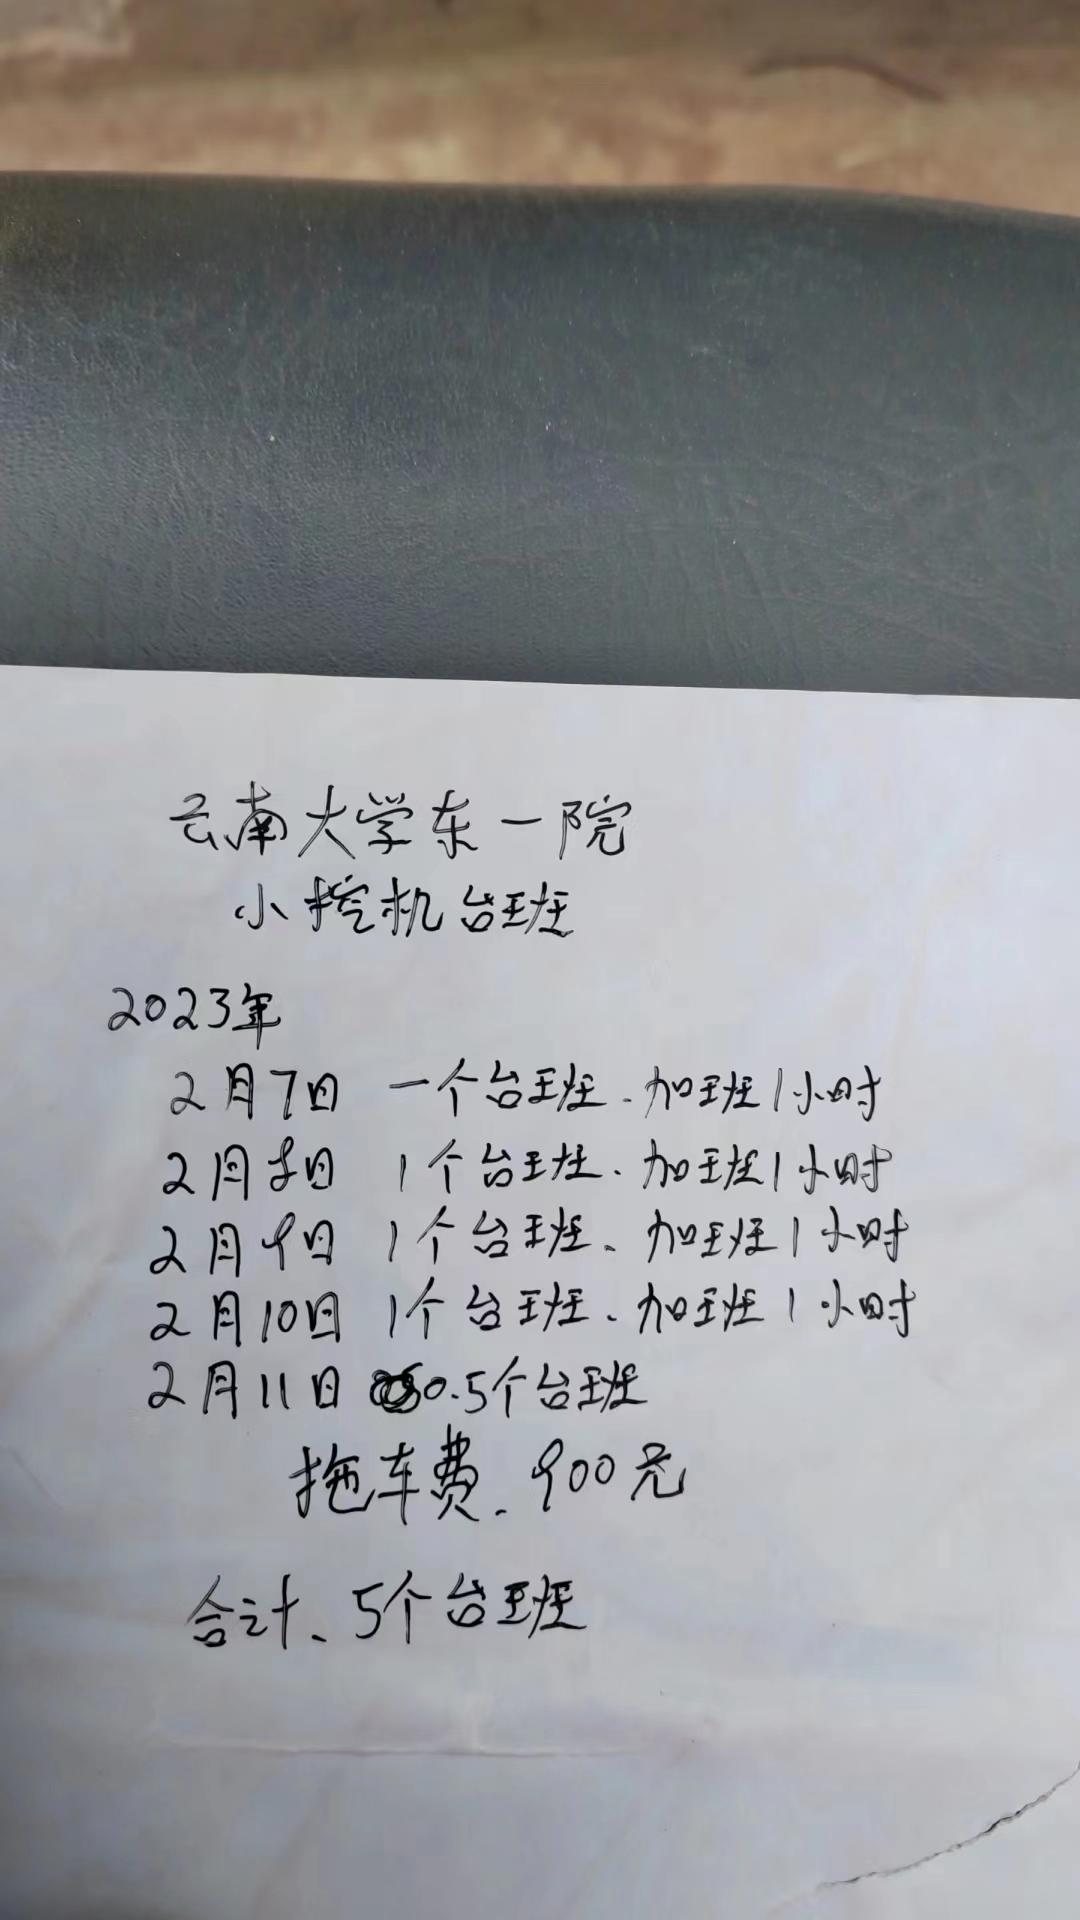 云南大学东一院
小挖机台班
2023年
2月7日 一个台班、加班1小时
2月8日 1个台班、加班1小时
2月9日 1个台班、加班1小时
2月10日 1个台班、加班1小时
2月11日 0.5个台班
拖车费、900元
合计、5个台班